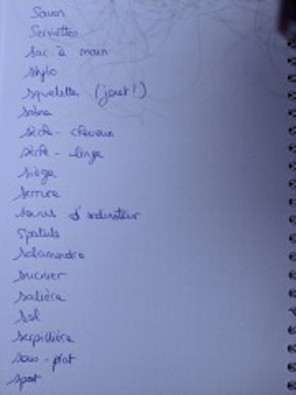 Savon
Serviettes
sac à main
stylo
squelette (jouet!)
sabre
sèche-cheveux
sèche-linge
siège
serrure
souris d'ordinateur
spatule
salamandre
sucrier
salière
sel
serpillière
sous-plat
spot